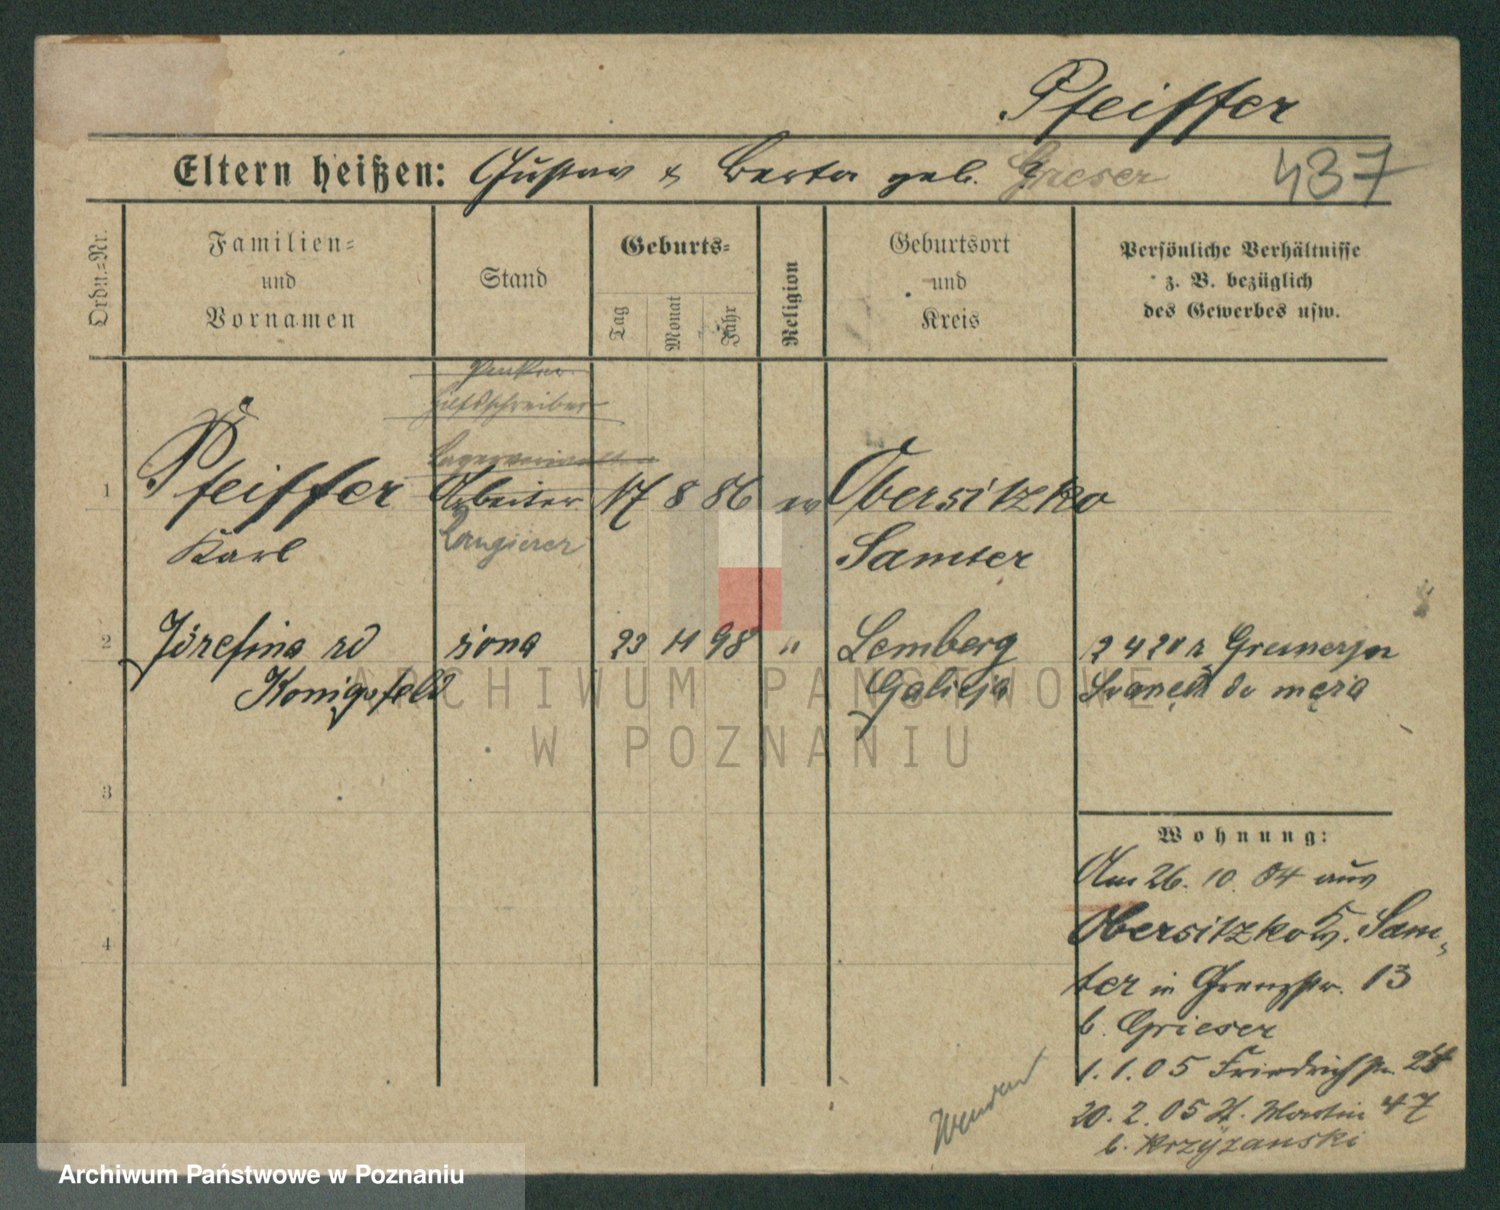 Pfeiffer
Eltern heißen: Gustav & Berta geb. Grieser 437
Ordn.=Nr.
Familien=
und
Vornamen
Stand
Geburts=
Tag
Monat
Jahr
Religion
Geburtsort
und
Kreis
Persönliche Verhältnisse
z. B. bezüglich
des Gewerbes usw.
Hilfsschreiber
1 Pfeiffer Arbeiter 17 8 86 ev Obersitzko
Karl Rangierer Samter
2 Józefina zd żona 23 11 98 " Lemberg
Königsfeld Galicja
do męża
3
4
Wohnung:
Am 26. 10. 04 aus
Obersitzko K. Sam-
ter in Grenzstr. 13
b. Grieser
1. 1. 05 Friedrichstr.
20. 2. 05 St. Martin 47
b. Krzyżanski
Wenden
ARCHIWUM PAŃSTWOWE
W POZNANIU
Archiwum Państwowe w Poznaniu